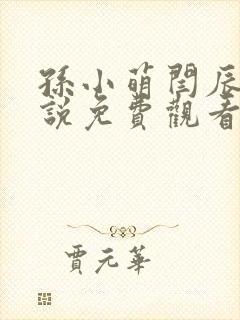 孫小萌閆辰
說免費觀看
賈元華